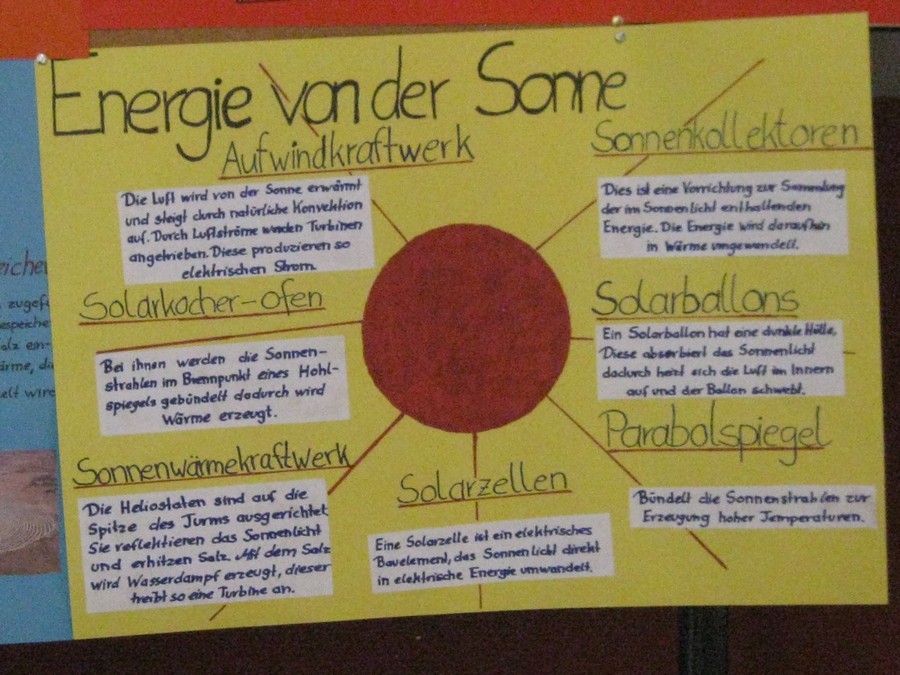 Energie von der Sonne
Aufwindkraftwerk
Die Luft wird von der Sonne erwärmt
und steigt durch natürliche Konvektion
auf. Durch Luftströme werden Turbinen
angetrieben. Diese produzieren so
elektrischen Strom.
Sonnenkollektoren
Dies ist eine Vorrichtung zur Sammlung
der im Sonnenlicht enthaltenden
Energie. Die Energie wird daraufhin
in Wärme umgewandelt.
Solarkocher-ofen
Bei ihnen werden die Sonnen-
strahlen im Brennpunkt eines Hohl-
spiegels gebündelt dadurch wird
Wärme erzeugt.
Solarballons
Ein Solarballon hat eine dunkle Hülle,
Diese absorbiert das Sonnenlicht
dadurch heizt sich die Luft im Innern
auf und der Ballon schwebt.
Parabolspiegel
Bündelt die Sonnenstrahlen zur
Erzeugung hoher Temperaturen.
Sonnenwärmekraftwerk
Die Heliostaten sind auf die
Spitze des Turms ausgerichtet
Sie reflektieren das Sonnenlicht
und erhitzen Salz. Mit dem Salz
wird Wasserdampf erzeugt, dieser
treibt so eine Turbine an.
Solarzellen
Eine Solarzelle ist ein elektrisches
Bauelement, das Sonnenlicht direkt
in elektrische Energie umwandelt.
eicher
zugef
espeiche
alz ein-
ärme, di
elt wird